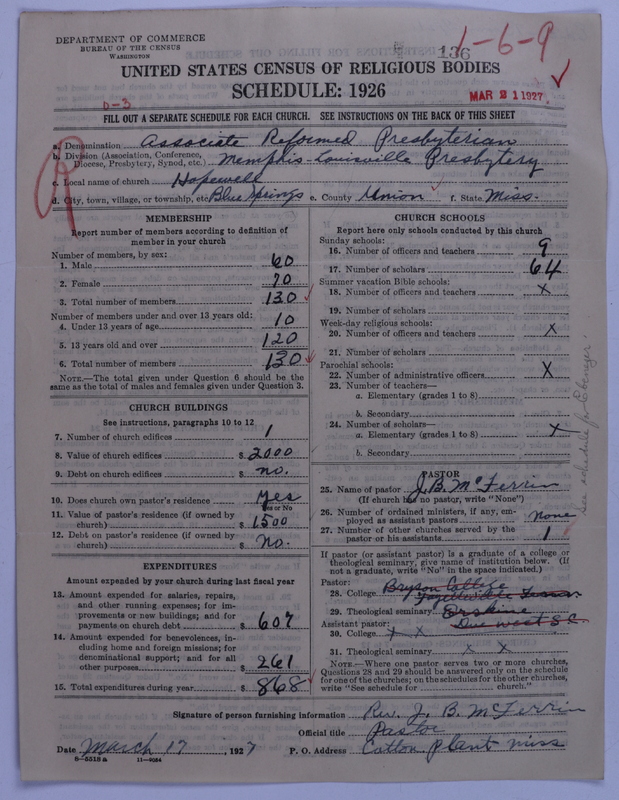 DEPARTMENT OF COMMERCE
BUREAU OF THE CENSUS
WASHINGTON
136
1-6-9
UNITED STATES CENSUS OF RELIGIOUS BODIES
SCHEDULE: 1926
MAR 21 1927
0-3
FILL OUT A SEPARATE SCHEDULE FOR EACH CHURCH. SEE INSTRUCTIONS ON THE BACK OF THIS SHEET
a. Denomination Associate Reformed Presbyterian
b. Division (Association, Conference, Diocese, Presbytery, Synod, etc.) Memphis-Louisville Presbytery
c. Local name of church Hopewell
d. City, town, village, or township, etc. Blue Springs e. County Union f. State Miss.
MEMBERSHIP
Report number of members according to definition of
member in your church
Number of members, by sex:
1. Male 60
2. Female 70
3. Total number of members 130
Number of members under and over 13 years old:
4. Under 13 years of age 10
5. 13 years old and over 120
6. Total number of members 130
NOTE.—The total given under Question 6 should be the
same as the total of males and females given under Question 3.
CHURCH BUILDINGS
See instructions, paragraphs 10 to 12
7. Number of church edifices 1
8. Value of church edifices $ 2000
9. Debt on church edifices $ no.
10. Does church own pastor's residence Yes
Yes or No
11. Value of pastor's residence (if owned by
church) $ 1500
12. Debt on pastor's residence (if owned by
church) $ No.
EXPENDITURES
Amount expended by your church during last fiscal year
13. Amount expended for salaries, repairs,
and other running expenses; for im-
provements or new buildings; and for
payments on church debt $ 607
14. Amount expended for benevolences, in-
cluding home and foreign missions; for
denominational support; and for all
other purposes $ 261
15. Total expenditures during year $ 868
CHURCH SCHOOLS
Report here only schools conducted by this church
Sunday schools:
16. Number of officers and teachers 9
17. Number of scholars 64
Summer vacation Bible schools:
18. Number of officers and teachers X
19. Number of scholars
Week-day religious schools:
20. Number of officers and teachers X
21. Number of scholars
Parochial schools:
22. Number of administrative officers X
23. Number of teachers—
a. Elementary (grades 1 to 8)
b. Secondary
24. Number of scholars—
a. Elementary (grades 1 to 8) X
b. Secondary
PASTOR
25. Name of pastor J. B. McFerrin
(If church has no pastor, write "None")
26. Number of ordained ministers, if any, em-
ployed as assistant pastors none
27. Number of other churches served by the
pastor or his assistants 1
If pastor (or assistant pastor) is a graduate of a college or
theological seminary, give name of institution below. (If
not a graduate, write "No" in the space indicated.)
Pastor:
28. College Bryson College
Fayetteville Tenn.
29. Theological seminary Erskine
Due West S.C.
Assistant pastor:
30. College X X
31. Theological seminary X X
NOTE.—Where one pastor serves two or more churches,
Questions 28 and 29 should be answered only on the schedule
for one of the churches; on the schedules for the other churches,
write "See schedule for church."
See schedule for Ebenezer
Signature of person furnishing information Rev. J. B. McFerrin
Official title Pastor
Date March 17, 1927 P. O. Address Cotton Plant Miss
8-5518 a 11-9064